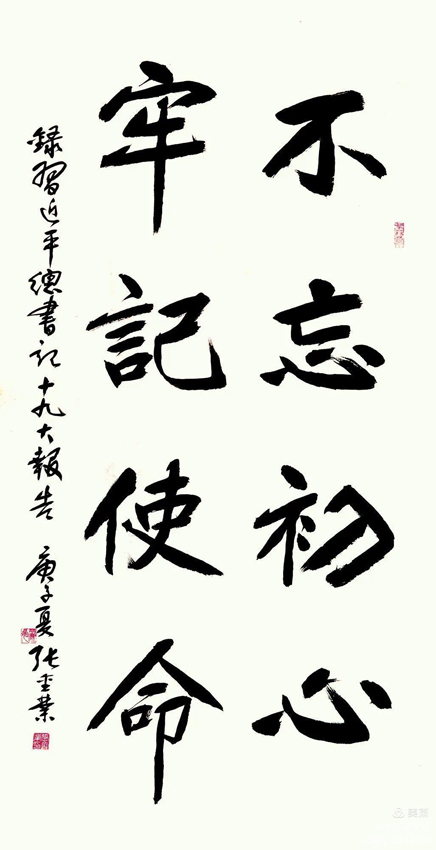 不忘初心
牢記使命
錄習近平總書記十九大報告 庚子夏 张 業
美篇